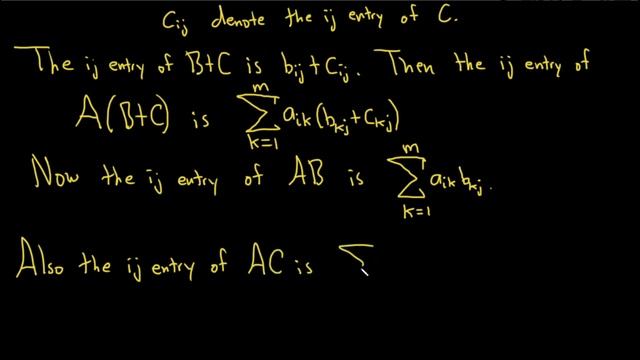 Cij denote the ij entry of C.
The ij entry of B+C is bij + Cij. Then the ij entry of
A(B+C) is m∑k=1 aik(bkj + Ckj)
Now the ij entry of AB is m∑k=1 aik bkj.
Also the ij entry of AC is ∑